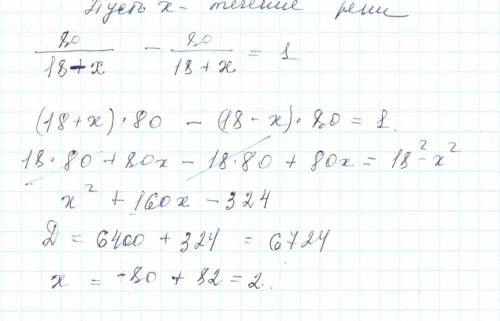 Пусть x - течение реки
80/(18-x) - 80/(18+x) = 1
(18+x)·80 - (18-x)·80 = 1.
18·80 + 80x - 18·80 + 80x = 18² - x²
x² + 160x - 324
D = 6400 + 324 = 6724
x = -80 + 82 = 2.